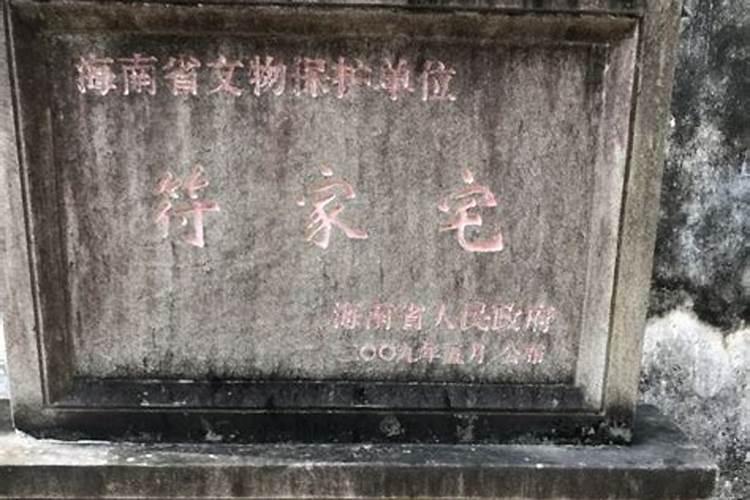 海南省文物保护单位
符家宅
海南省人民政府
二〇〇九年五月 公布